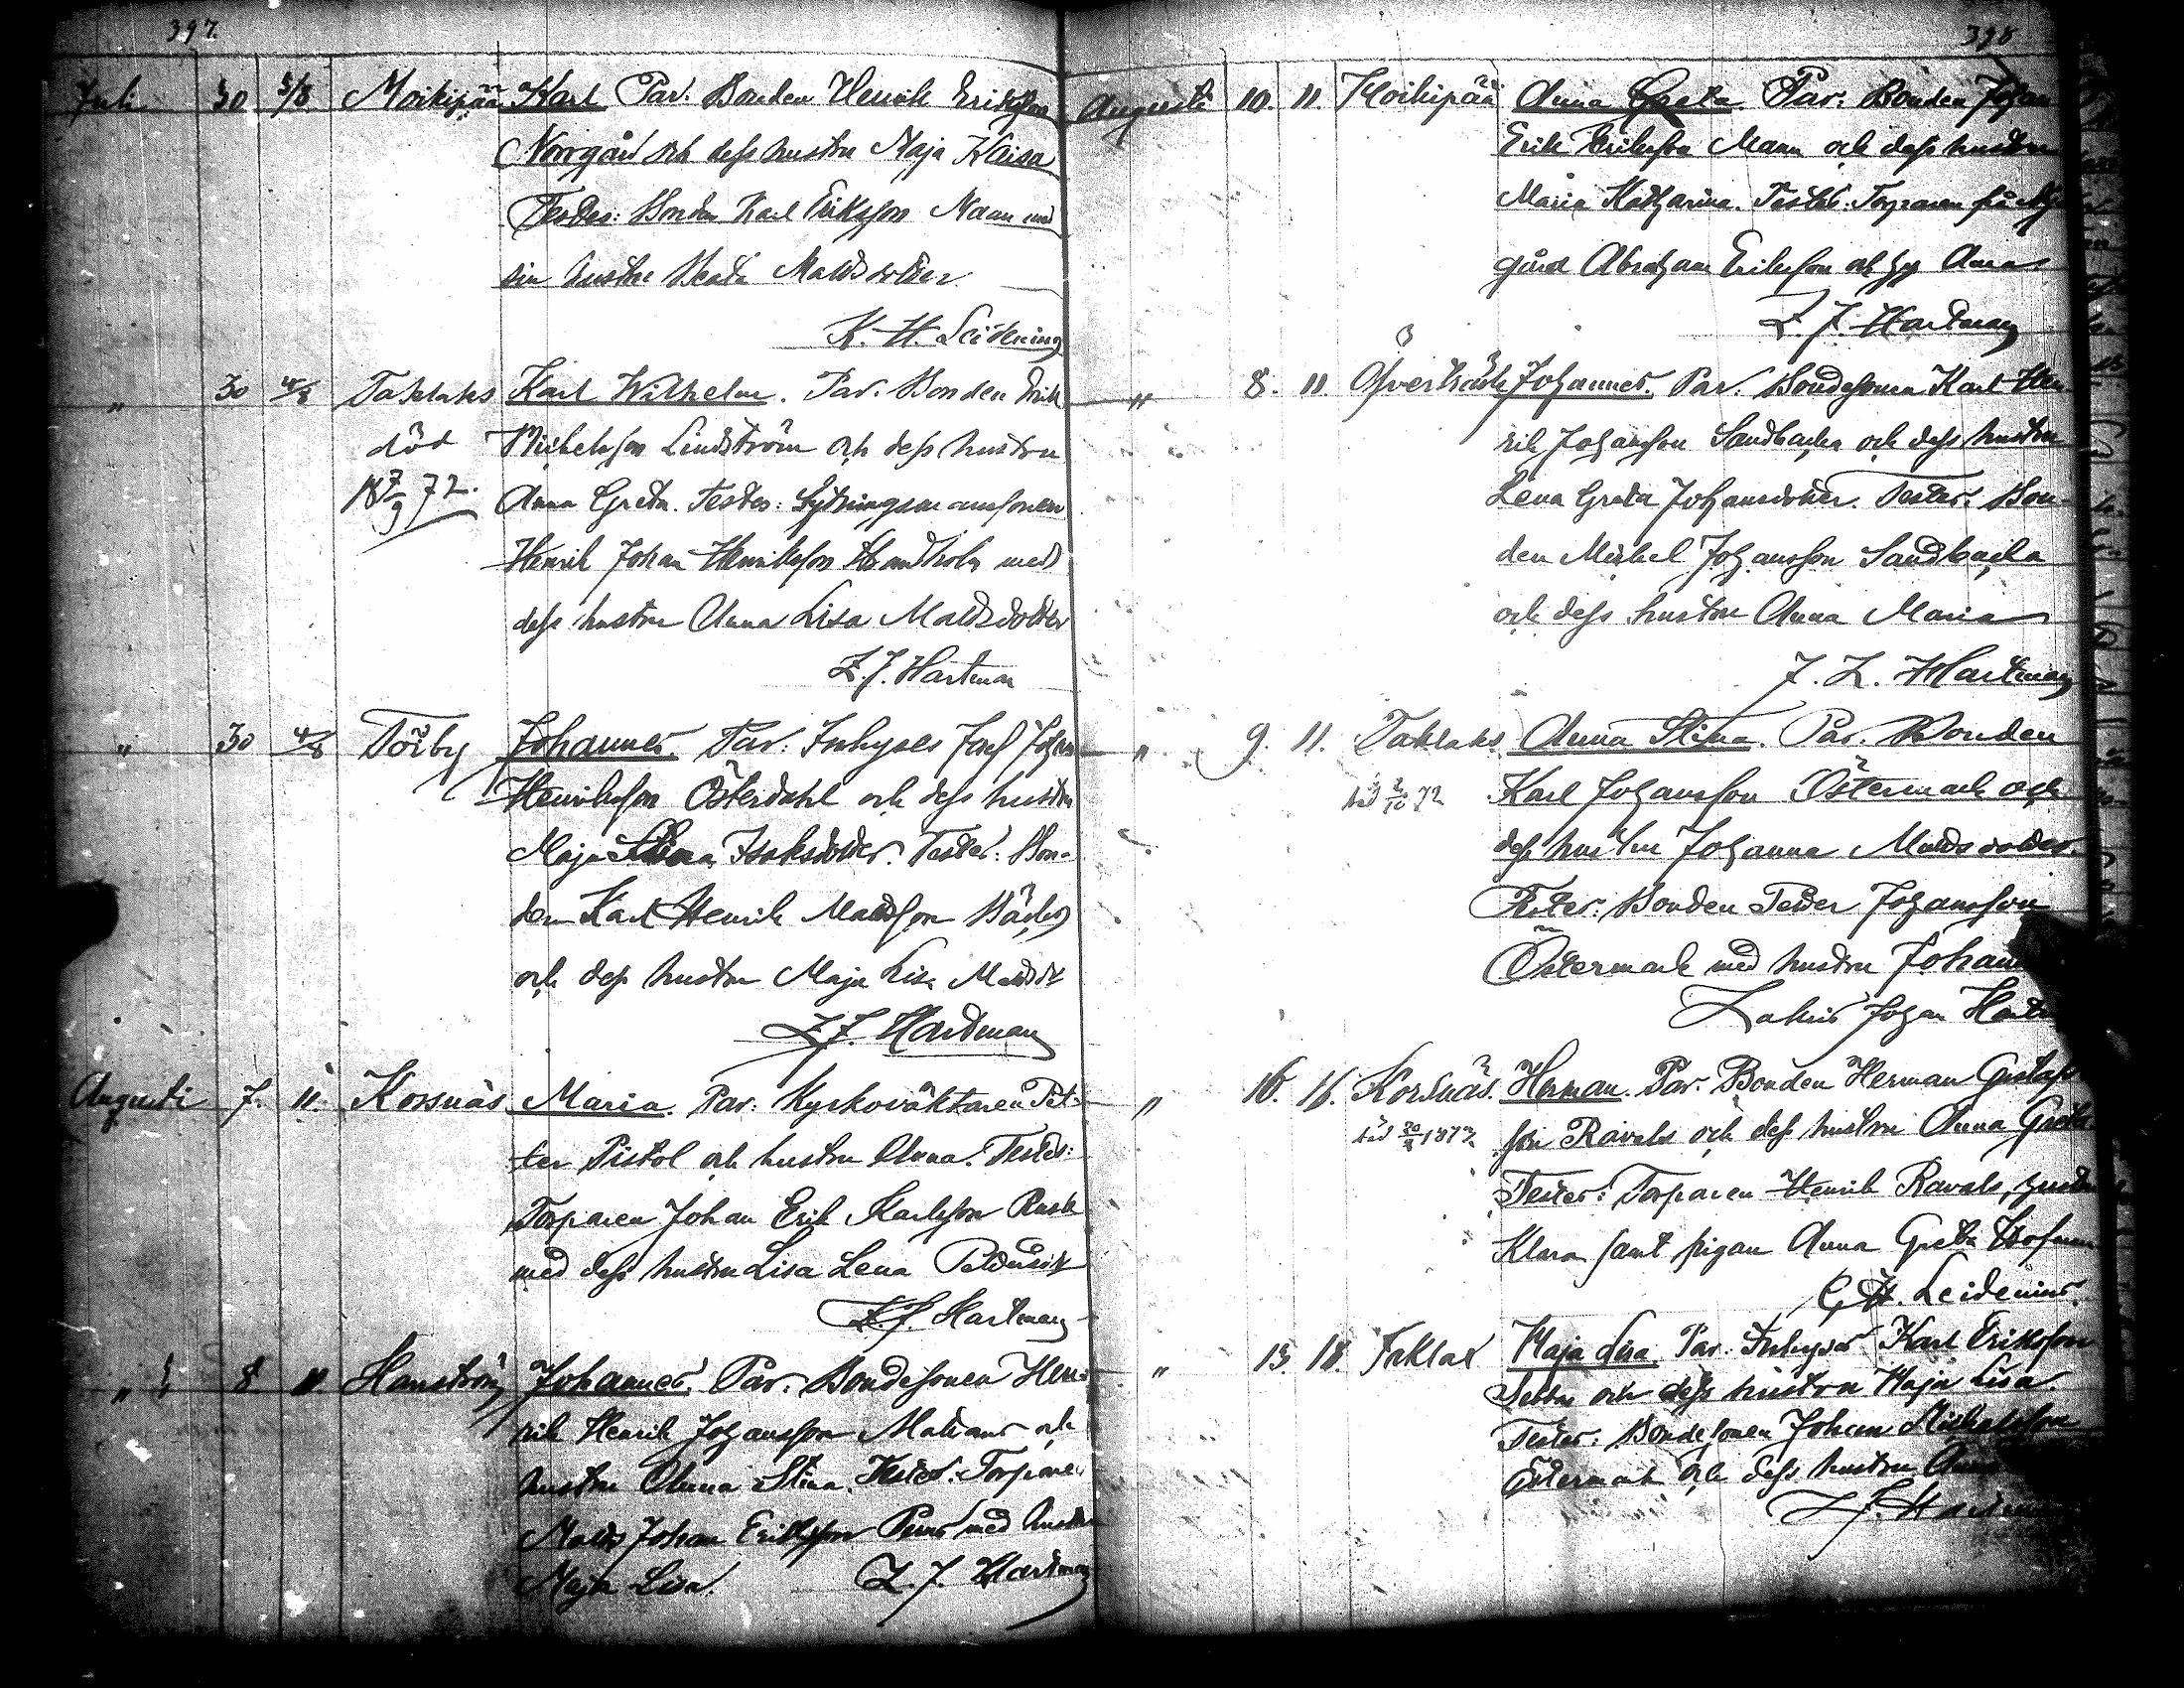 397
Juli 30 5/8 Moikipää Karl Par. Bonden Henrik Eriksson
Norrgård och dess hustru Maja Kaisa
Testes: Bonden Karl Eriksson Nann med
sin hustru Beata Mattsdotter
K. H. Leidenius
" 30 4/8 Taklaks Karl Wilhelm. Par. Bonden Erik
död Michelsson Lindström och dess hustru
18 7/9 72. Anna Greta. Testes: Sytningsmanssonen
Henrik Johan Henriksson med
dess hustru Anna Lisa Mattsdotter
Z. J. Hartman
" 30 4/8 Töiby Johannes. Par: Inhyses Johan
Henriksson Österdahl och dess hustru
Maja Isaksdotter. Testes: Bon-
den Karl Henrik Mattsson Bäck
och dess hustru Maja Lisa Mattsdr
Z. J. Hartman
Augusti 7. 11. Korsnäs Maria. Par: Kyrkoväktaren Pet-
ter Pistol och hustru Anna. Testes:
Torparen Johan Erik Karlsson Rusk
med dess hustru Lisa Lena
Z. J. Hartman
" 8 11. Harrström Johannes. Par. Bondesonen Hen-
rik Henrik Johansson och
hustru Anna Stina. Testes: Torparen
Matts Johan Eriksson med hustru
Maja Lisa. Z. J. Hartman
398
Augusti 10. 11. Moikipää Anna Greta. Par. Bonden Johan
Erik Eriksson Mann och dess hustru
Maria Katharina. Testes: Torparen från
gård Abraham Eriksson och h. Anna
Z. J. Hartman
" 8. 11. Öfverträsk Johannes. Par. Bondesonen Karl Hen-
rik Johansson Sandbacka och dess hustru
Lena Greta Johansdotter. Testes. Bon-
den Mickel Johansson Sandbacka
och dess hustru Anna Maria
J. Z. Hartman
" 9. 11. Taklaks Anna Stina. Par. Bonden
död 2/10 72 Karl Johansson Östermark och
dess hustru Johanna Mattsdotter.
Testes: Bonden Peder Johansson
Östermark med hustru Johanna
Zakris Johan Hartman
" 16. 16. Korsnäs. Herman. Par. Bonden Herman Gustafs-
död 1873 son Ravals och dess hustru Anna Greta
Testes: Torparen Henrik Ravals, hustru
Klara samt pigan Anna Greta
G. H. Leidenius.
" 15. 18. Taklax Maja Lisa. Par. Inhyses Karl Eriksson
och dess hustru Maja Lisa.
Testes: Bondesonen Johan Mickelsson
Östermark och dess hustru Anna
Z. J. Hartman